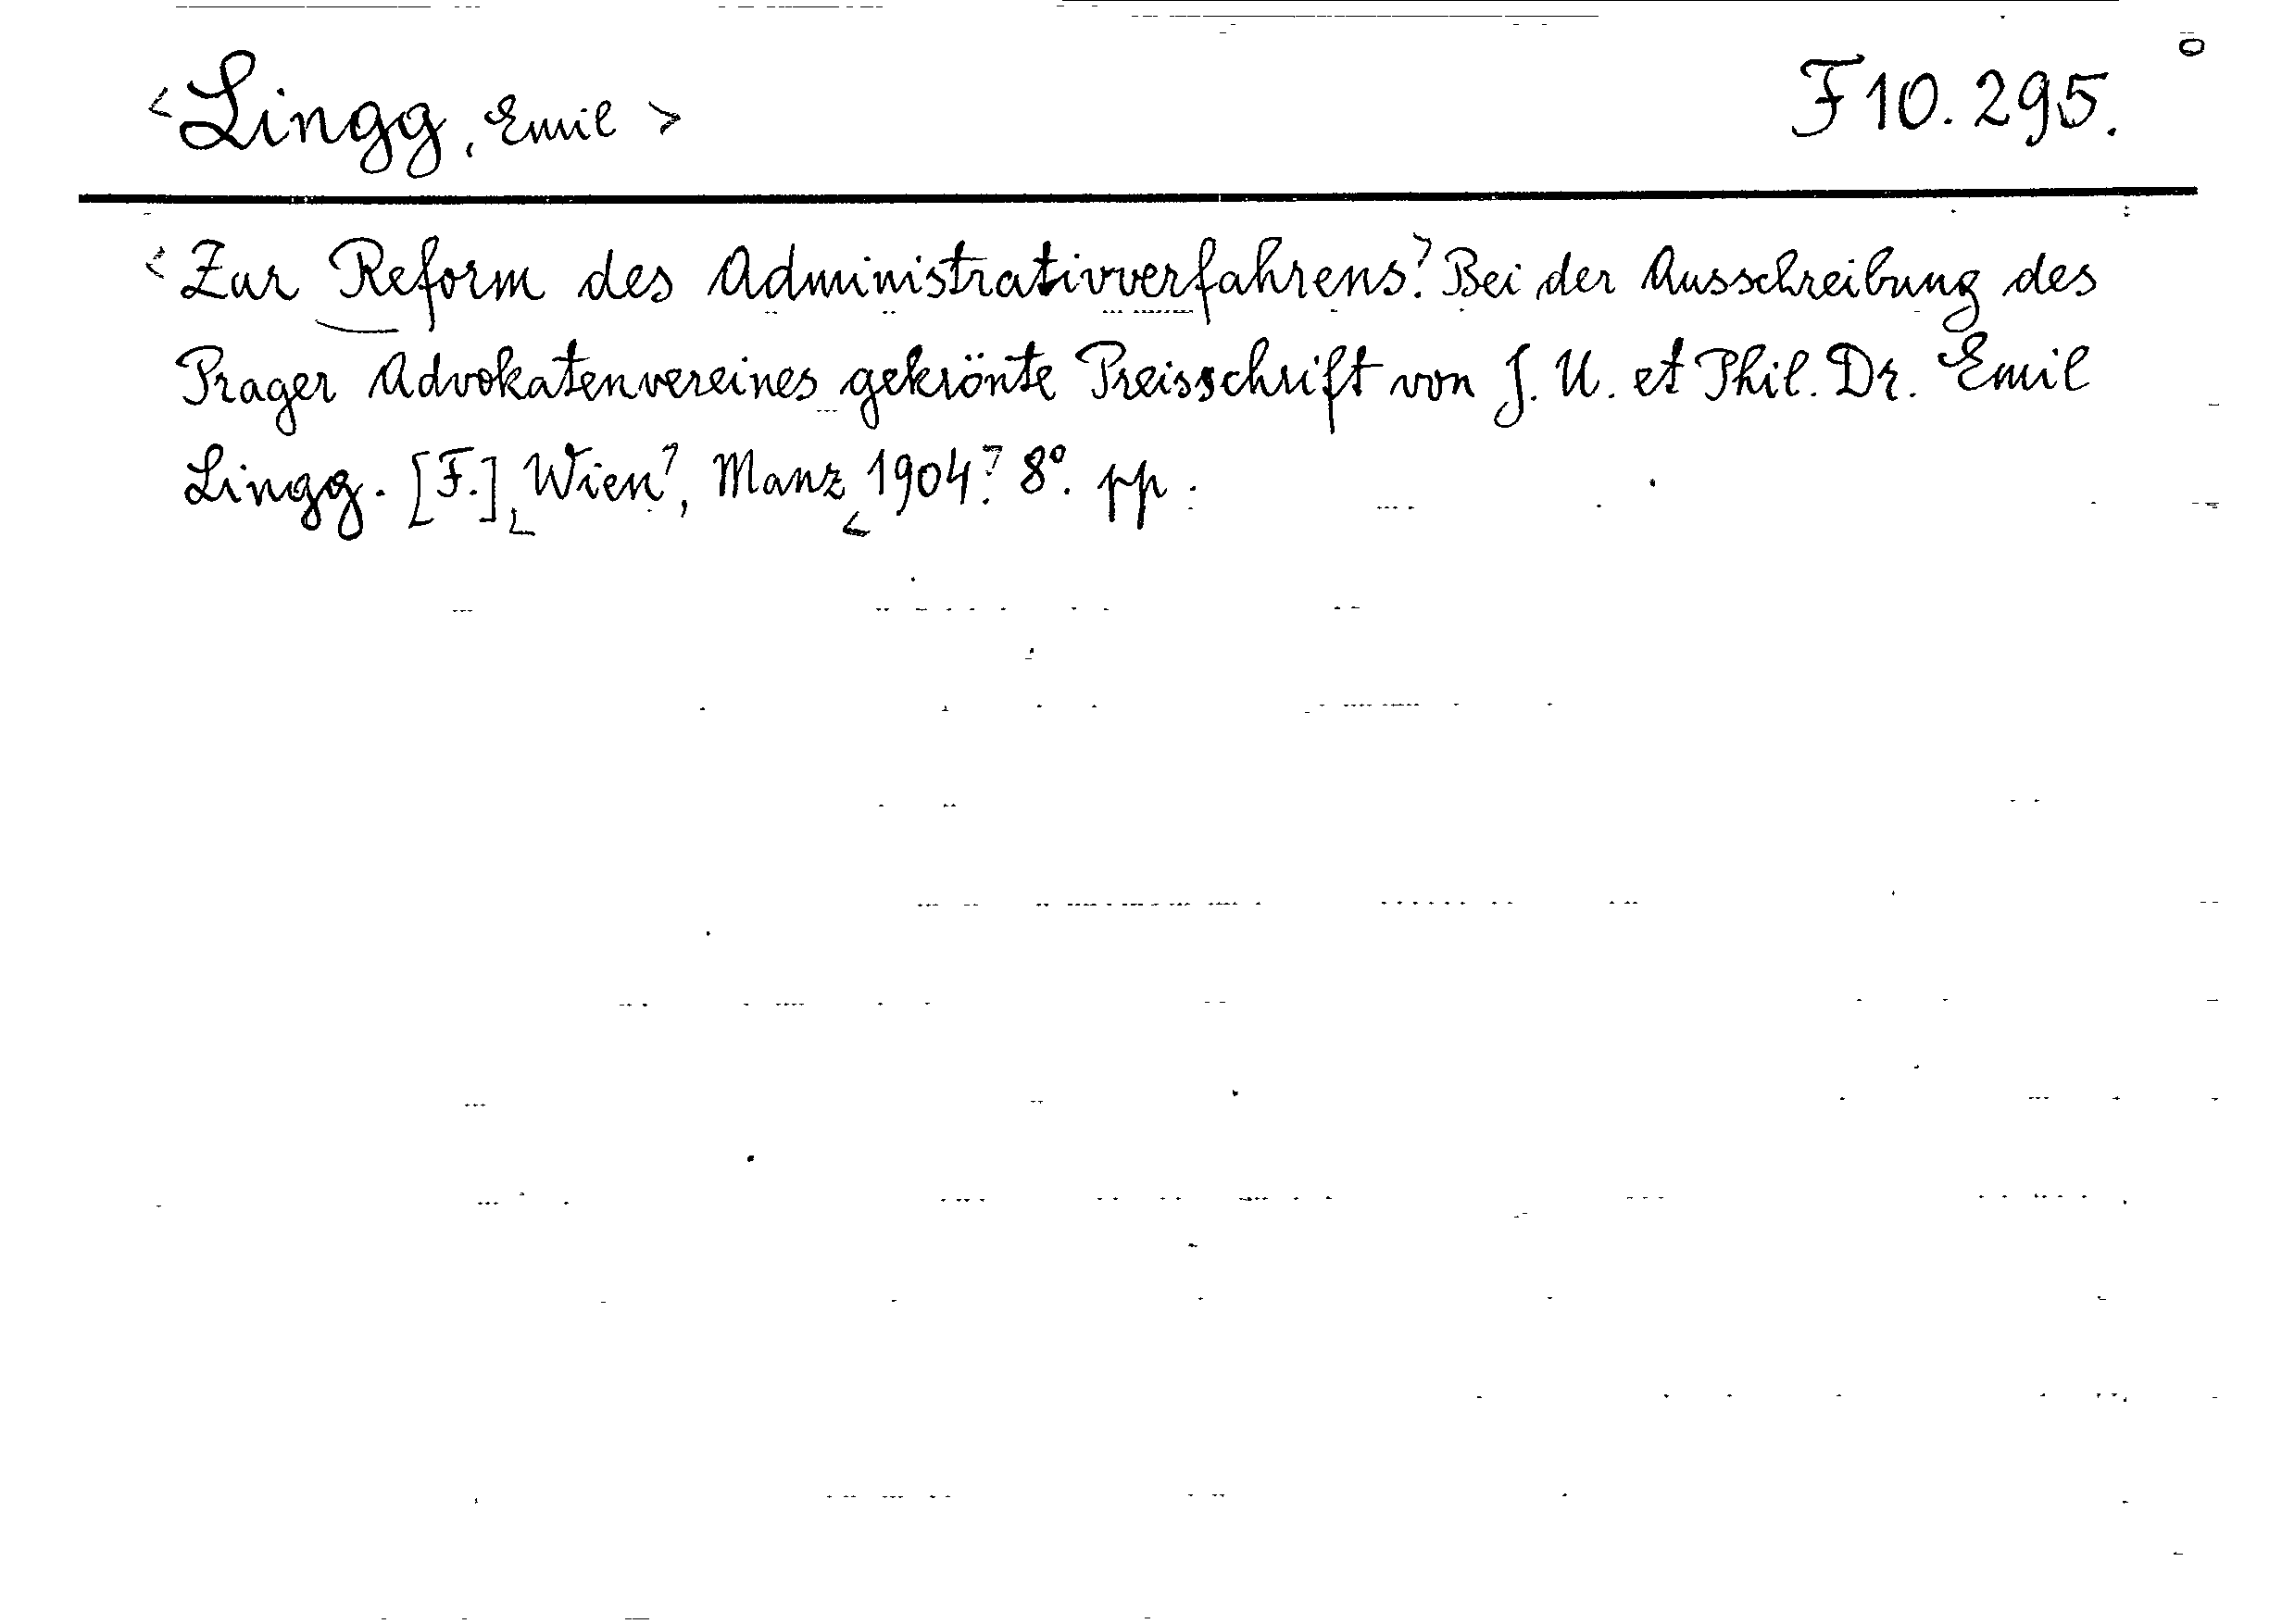 <Lingg, Emil> F 10. 295.
<Zur Reform des Administrativverfahrens.> Bei der Ausschreibung des
Prager Advokatenvereines gekrönte Preisschrift von J. U. et Phil. Dr. Emil
Lingg. [F.] <Wien>, Manz <1904.> 8°. pp.